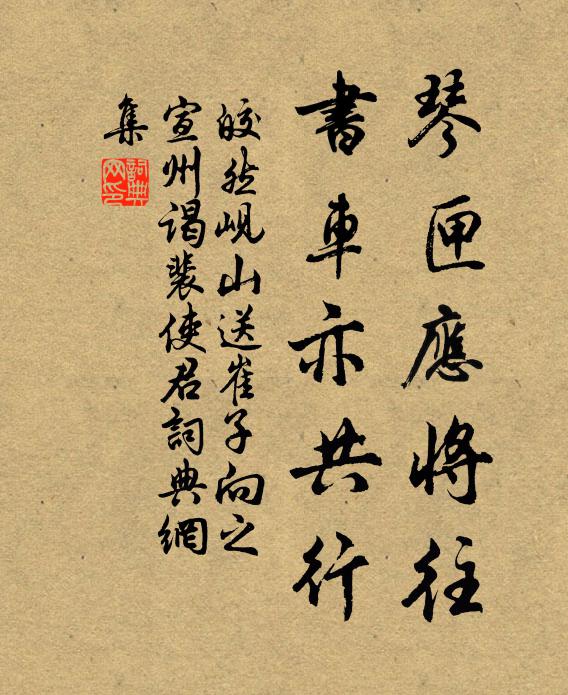 琴匣應將往
書車亦共行
皎然峴山送崔子向之
宣州謁裴使君詞典網
集
詞典网印